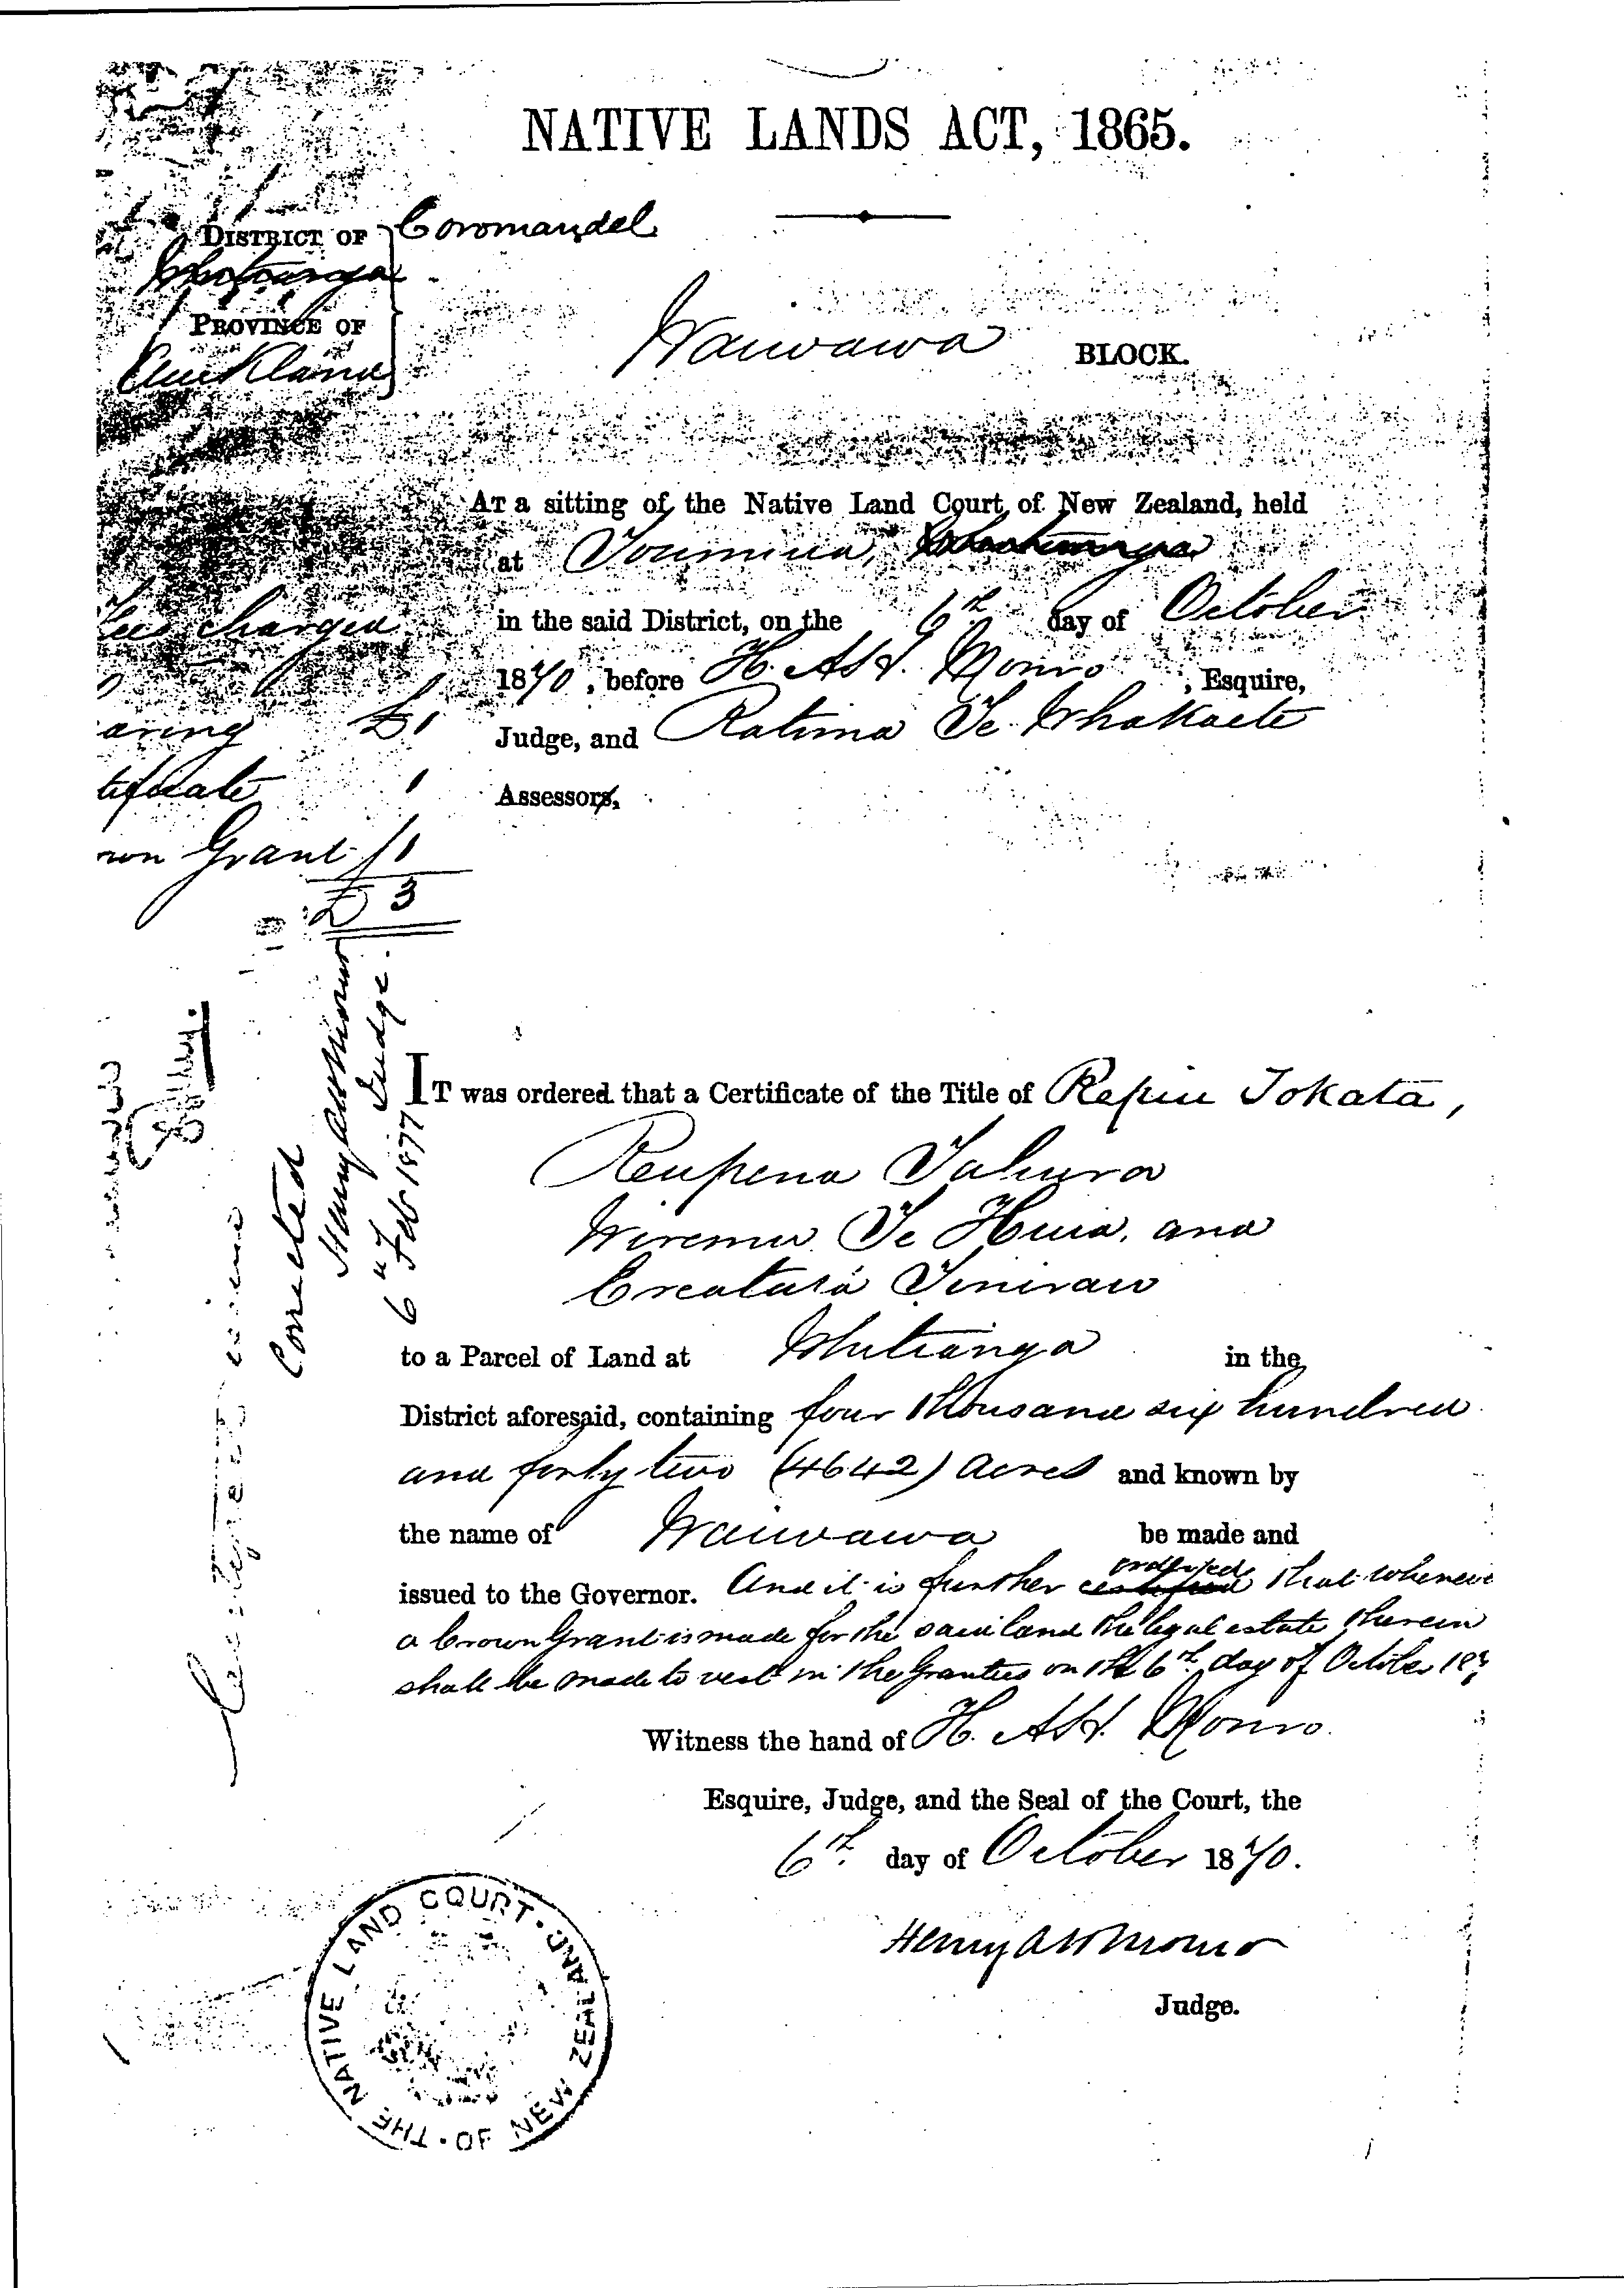 NATIVE LANDS ACT, 1865.
DISTRICT OF Coromandel
Whitianga
PROVINCE OF
Auckland
Waiwawa BLOCK.
AT a sitting of the Native Land Court of New Zealand, held
at
in the said District, on the 6th day of October
1870, before H. A. H. Monro, Esquire,
Judge, and Ratima Te Whakaete
Assessors,
Fees charged
aring £1
tificate 1
wn Grant 1
£3
Corrected
Henry A H Monro
Judge.
6" Feb 1877
IT was ordered that a Certificate of the Title of Repiu Tokata,
Reupena Tahura
Wiremu Te Huia, and
Tinirau
to a Parcel of Land at Whitianga in the
District aforesaid, containing four thousand six hundred
and forty two (4642) acres and known by
the name of Waiwawa be made and
issued to the Governor. And it is further certified ordered that whenever
a Crown Grant is made for the said land the legal estate therein
shall be made to vest in the Grantees on the 6th day of October 18
Witness the hand of H. A. H. Monro.
Esquire, Judge, and the Seal of the Court, the
6th day of October 1870.
Henry A H Monro
Judge.
THE NATIVE LAND COURT · OF NEW ZEALAND ·